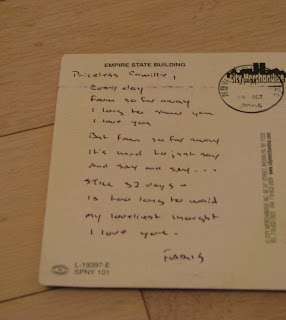 EMPIRE STATE BUILDING
City Merchandise
OCT
Priceless Camille,
Every day
From so far away
I long to show you
I love you
But from so far away
It's hard to just say
And say and say...
Still 52 days -
Is too long to
My loveliest thought
I love you.
L-19397-E
SPNY 101